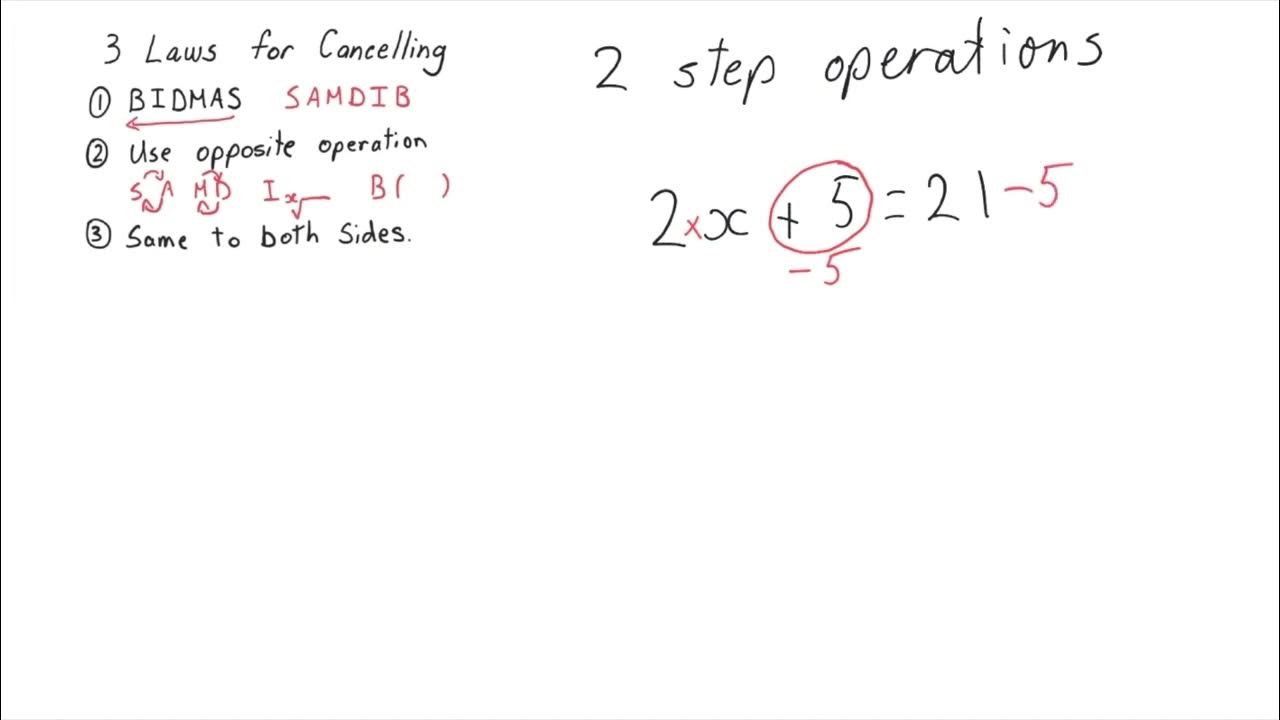 3 Laws for Cancelling
① BIDMAS SAMDIB
② Use opposite operation
S A M D I x√ B ( )
③ Same to both sides.
2 step operations
2 × x + 5 = 21 - 5
- 5